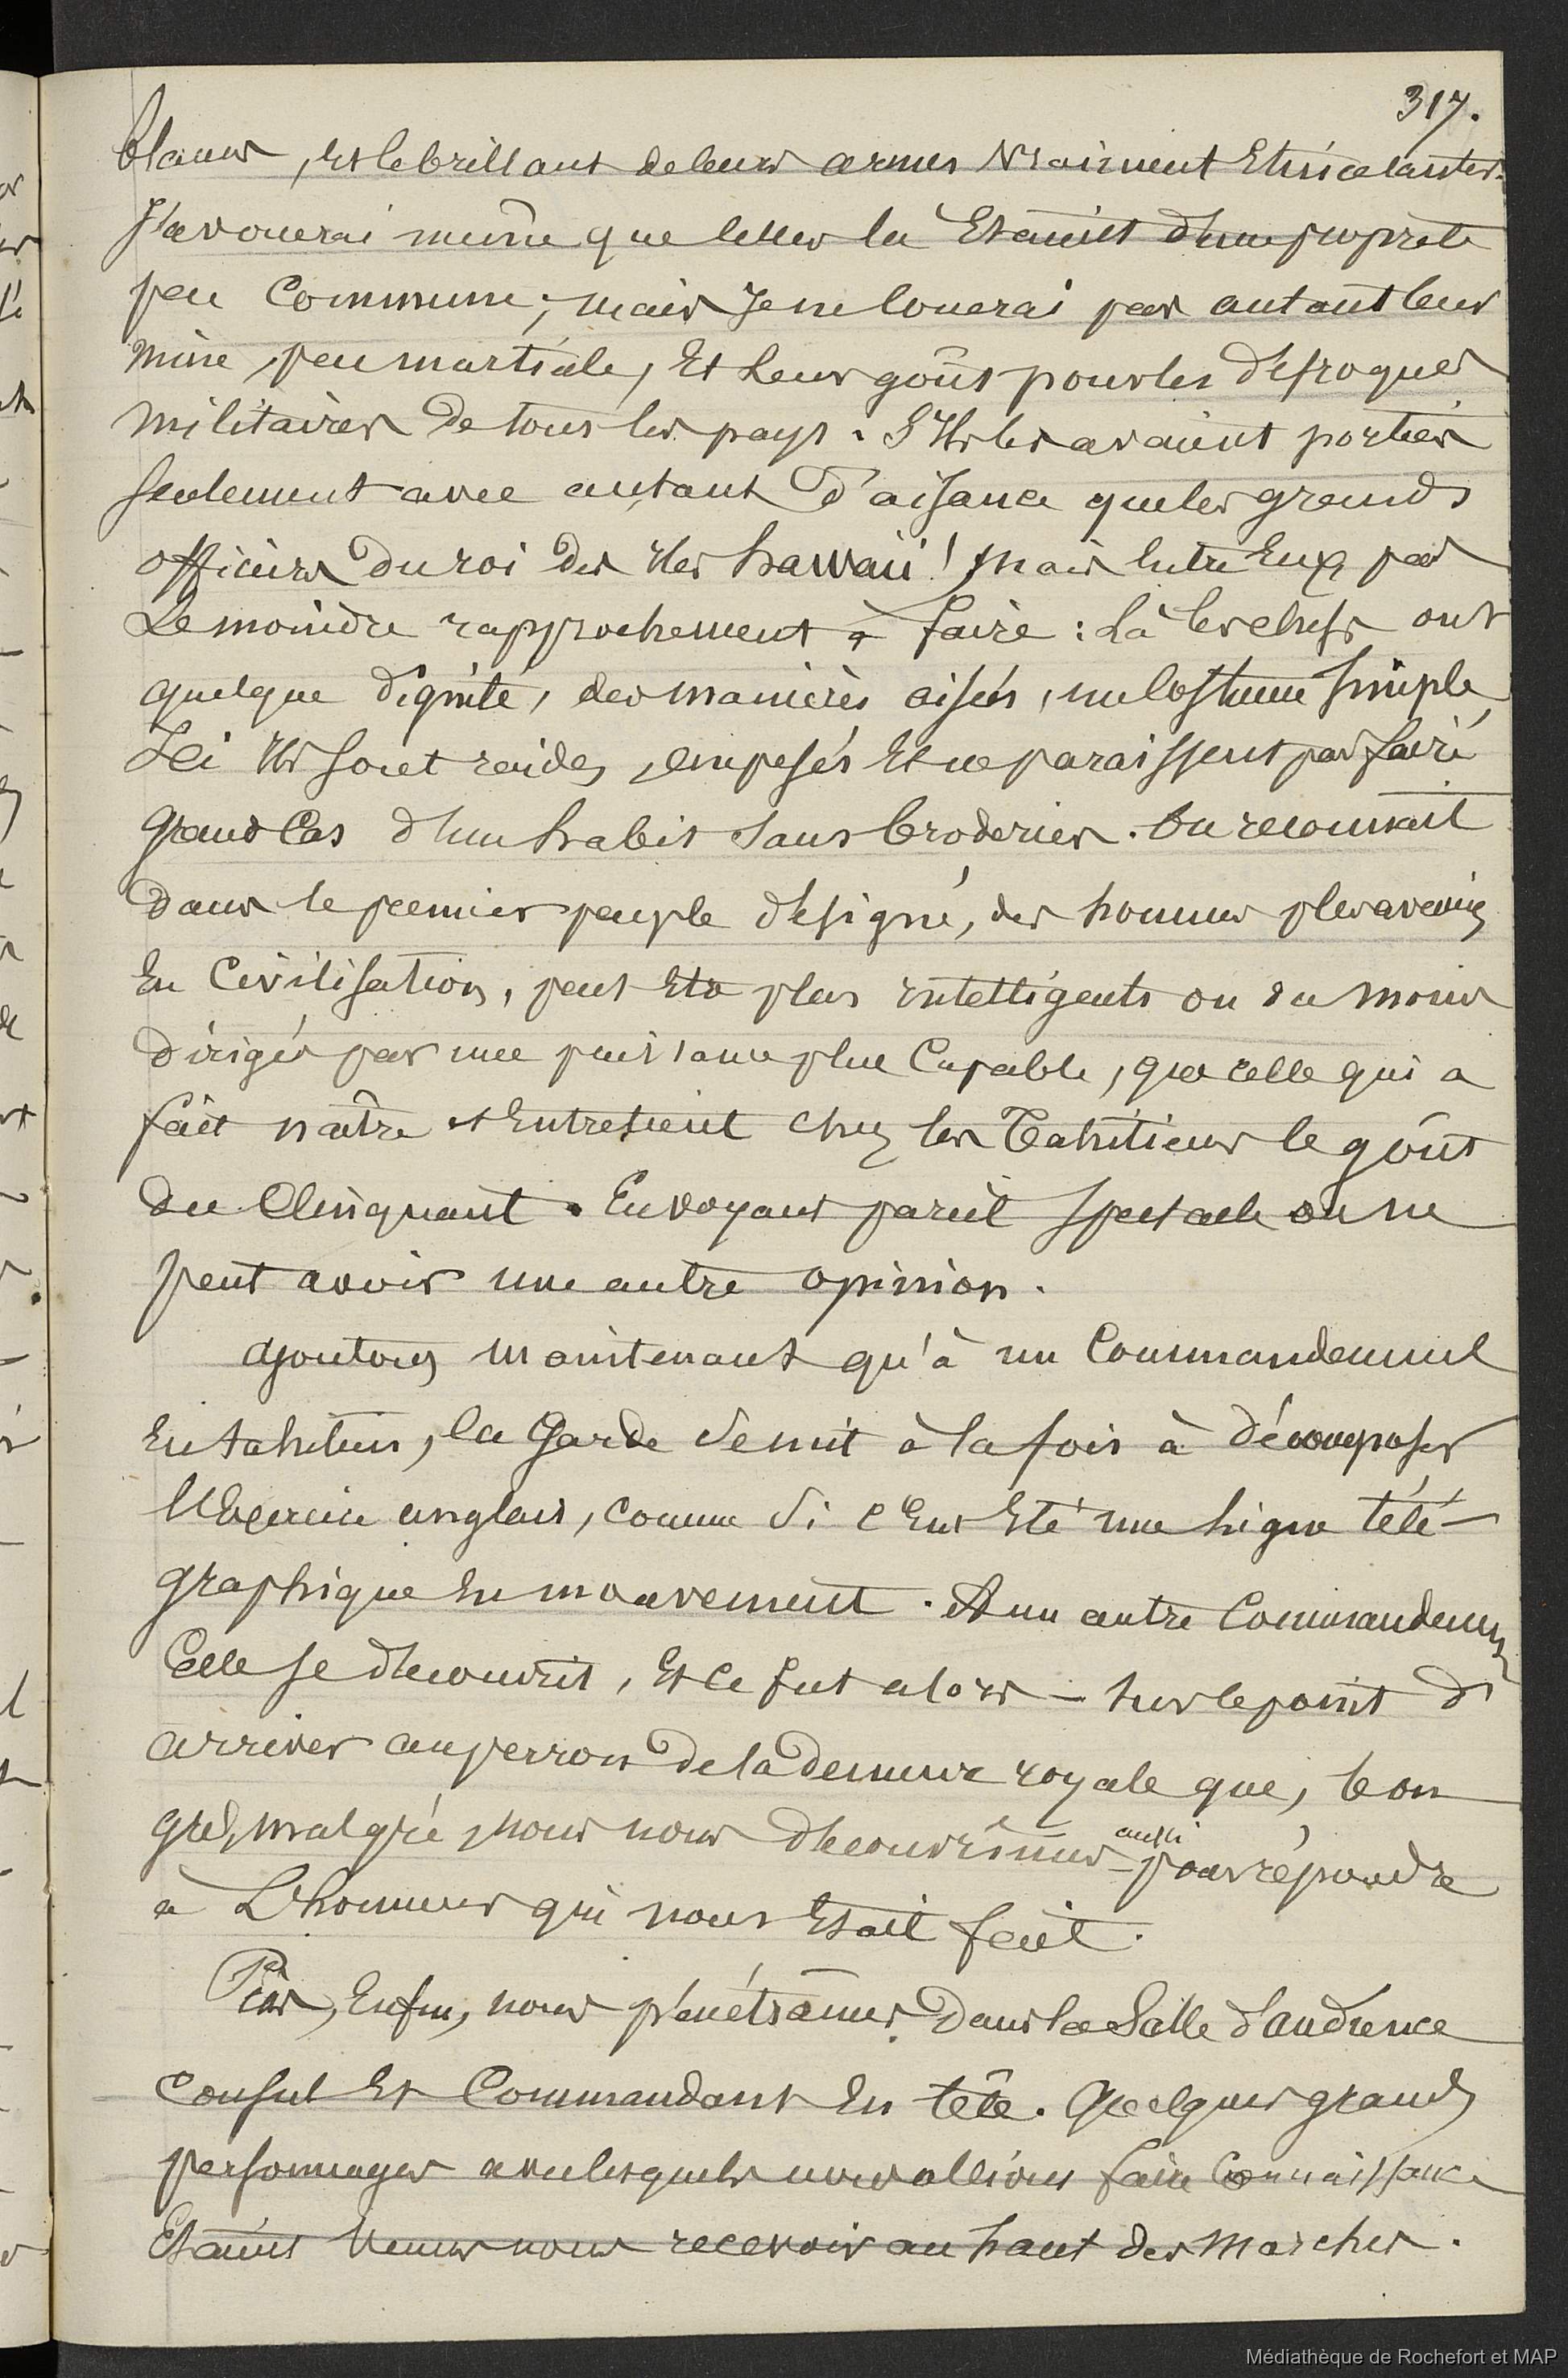 317.
blancs, et le brillant de leurs armes vraiment étincelantes.
J'avouerai même que celles là étaient d'une propreté
peu commune ; mais je ne louerai pas autant leur
mine peu martiale, et leur goût pour les défroques
militaires de tous les pays. S'ils les avaient portées
seulement avec autant d'aisance que les grands
officiers du roi des îles hawaii ! mais entre eux pas
le moindre rapprochement à faire : là les chefs ont
quelque dignité, des manières aisées, un costume simple,
Ici ils sont raides, empesés et ne paraissent pas faire
grand cas d'un habit sans broderies. On reconnait
dans le premier peuple désigné, des hommes plus avancés
en civilisation, peut être plus intelligents ou du moins
dirigés par une puissance plus capable, que celle qui a
fait naître et entretient chez les Tahitiens le goût
du clinquant. En voyant pareil spectacle on ne
peut avoir une autre opinion.
ajoutons maintenant qu'à un commandement
en tahitien, la garde se mit à la fois à décomposer
l'exercice anglais, comme si c'eut été une ligne télé-
graphique en mouvement. A un autre commandement
elle se découvrit, et ce fut alors - sur le point d'
arriver au perron de la demeure royale que, bon
gré, malgré, nous nous découvrîmes aussi pour répondre
à l'honneur qui nous était fait.
Puis, enfin, nous pénétrâmes dans la salle d'audience
consul et commandant en tête. Quelques grands
personnages avec lesquels nous allions faire connaissance
étaient venus nous recevoir au haut des marches.
Médiathèque de Rochefort et MAP